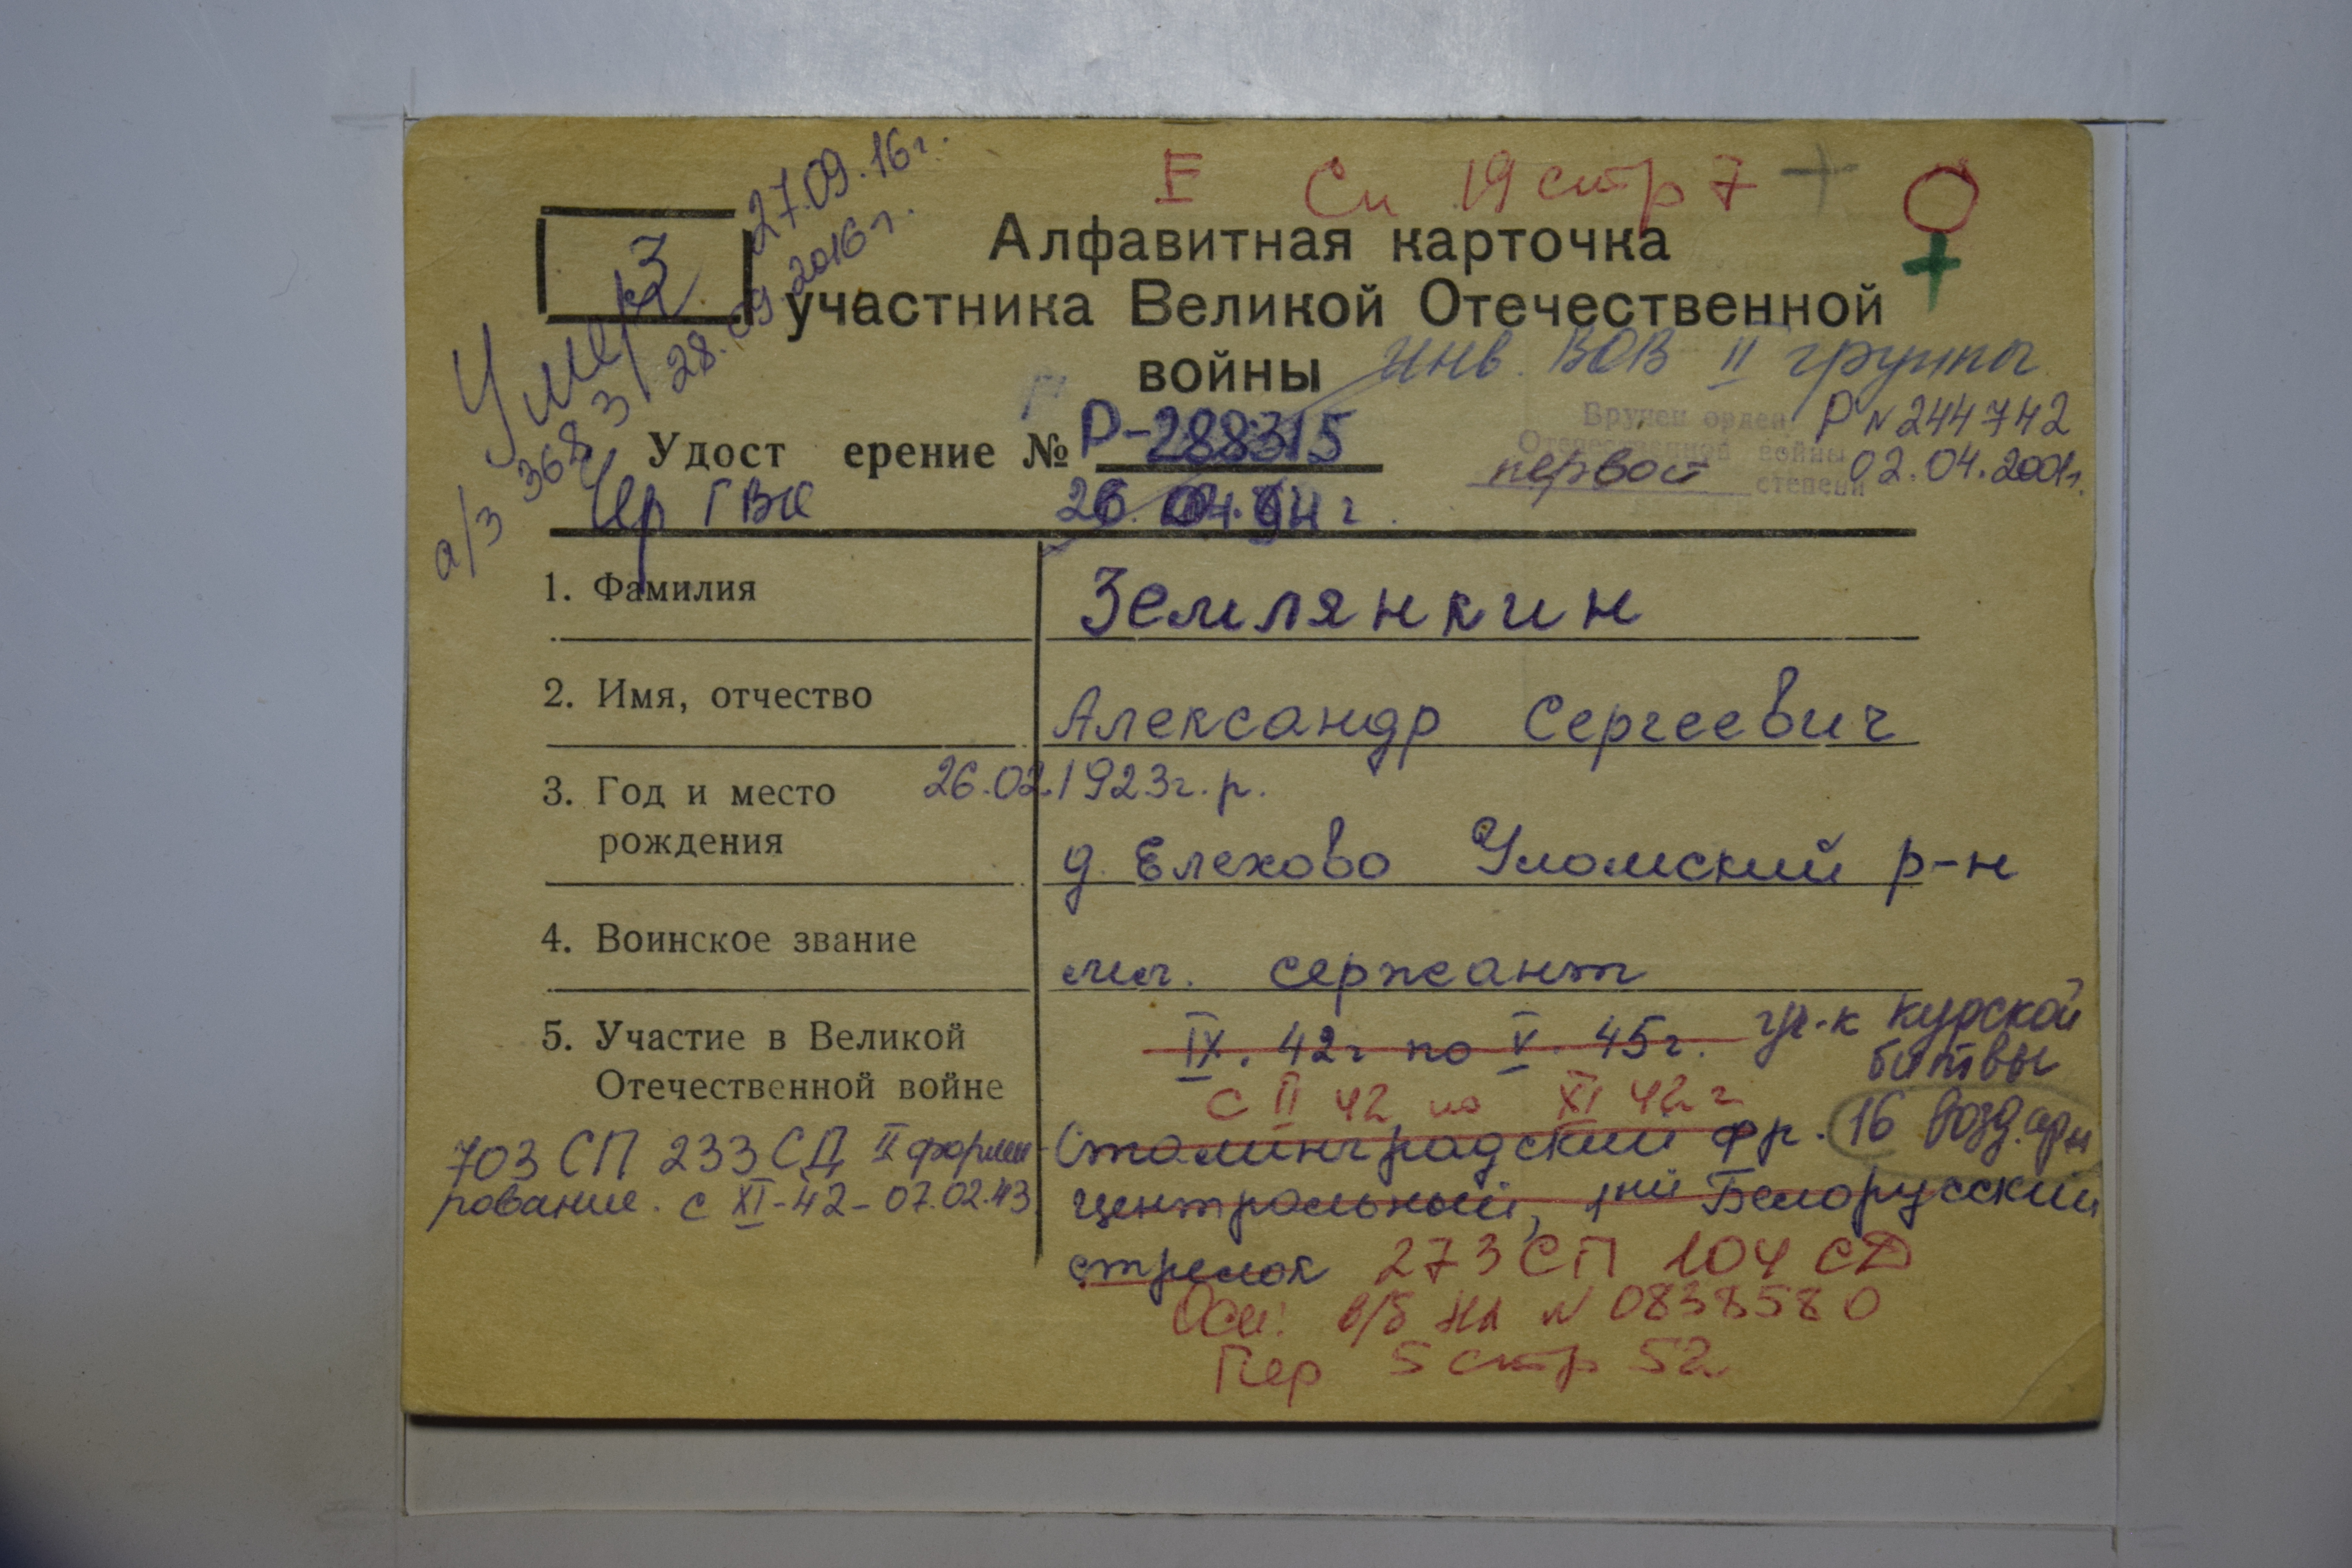 I Сп 19 стр 7 +
Алфавитная карточка
участника Великой Отечественной
войны
З
Умер 27.09.16г.
а/з 368 28.09.2016г.
инв. ВОВ II группы
Р N 244742
02.04.2001г.
Вручен орден
Отечественной войны
первой степени
Удост ерение № Р-288315
Чер ГВК 26.04.94г.
1. Фамилия Землянкин
2. Имя, отчество Александр Сергеевич
3. Год и место 26.02.1923г.р.
рождения д. Елехово Уломский р-н
4. Воинское звание мл. сержант
5. Участие в Великой IX. 42г по V. 45г. уч-к Курской
битвы
Отечественной войне с II 42 по XI 42г
703 СП 233 СД II форми- Сталинградский фр. 16 возд. арм
рование. с XI-42-07.02.43 центральный, 1ый Белорусский
стрелок 273 СП 104 СД
Осн: в/б НА N 0838580
Пер 5 стр 52